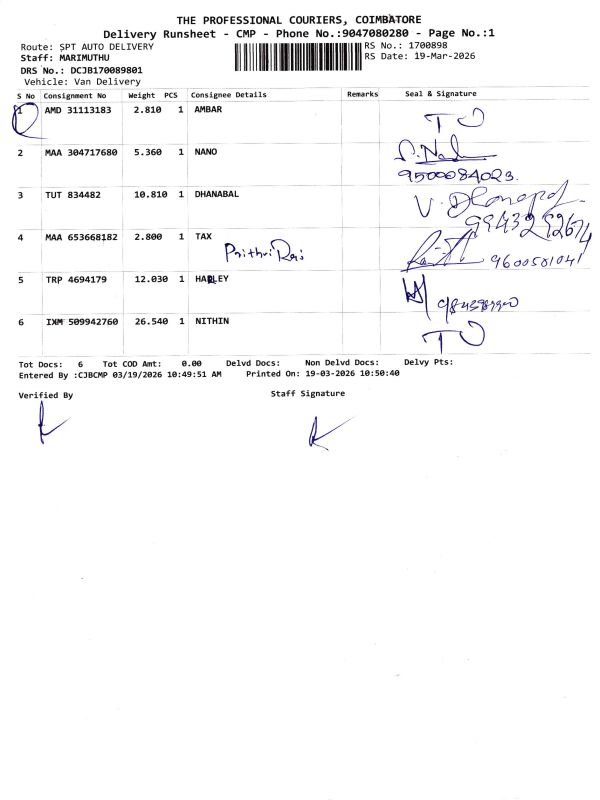 THE PROFESSIONAL COURIERS, COIMBATORE
Delivery Runsheet - CMP - Phone No.:9047080280 - Page No.:1
Route: SPT AUTO DELIVERY RS No.: 1700898
Staff: MARIMUTHU RS Date: 19-Mar-2026
DRS No.: DCJB170089801
Vehicle: Van Delivery
S No Consignment No Weight PCS Consignee Details Remarks Seal & Signature
1 AMD 31113183 2.810 1 AMBAR TO
2 MAA 304717680 5.360 1 NANO
9500084023.
3 TUT 834482 10.810 1 DHANABAL
9943292674
4 MAA 653668182 2.800 1 TAX
Prithvi Raj 9600501041
5 TRP 4694179 12.030 1 HARLEY
6 IXM 509942760 26.540 1 NITHIN TO
Tot Docs: 6 Tot COD Amt: 0.00 Delvd Docs: Non Delvd Docs: Delvy Pts:
Entered By :CJBCMP 03/19/2026 10:49:51 AM Printed On: 19-03-2026 10:50:40
Verified By Staff Signature